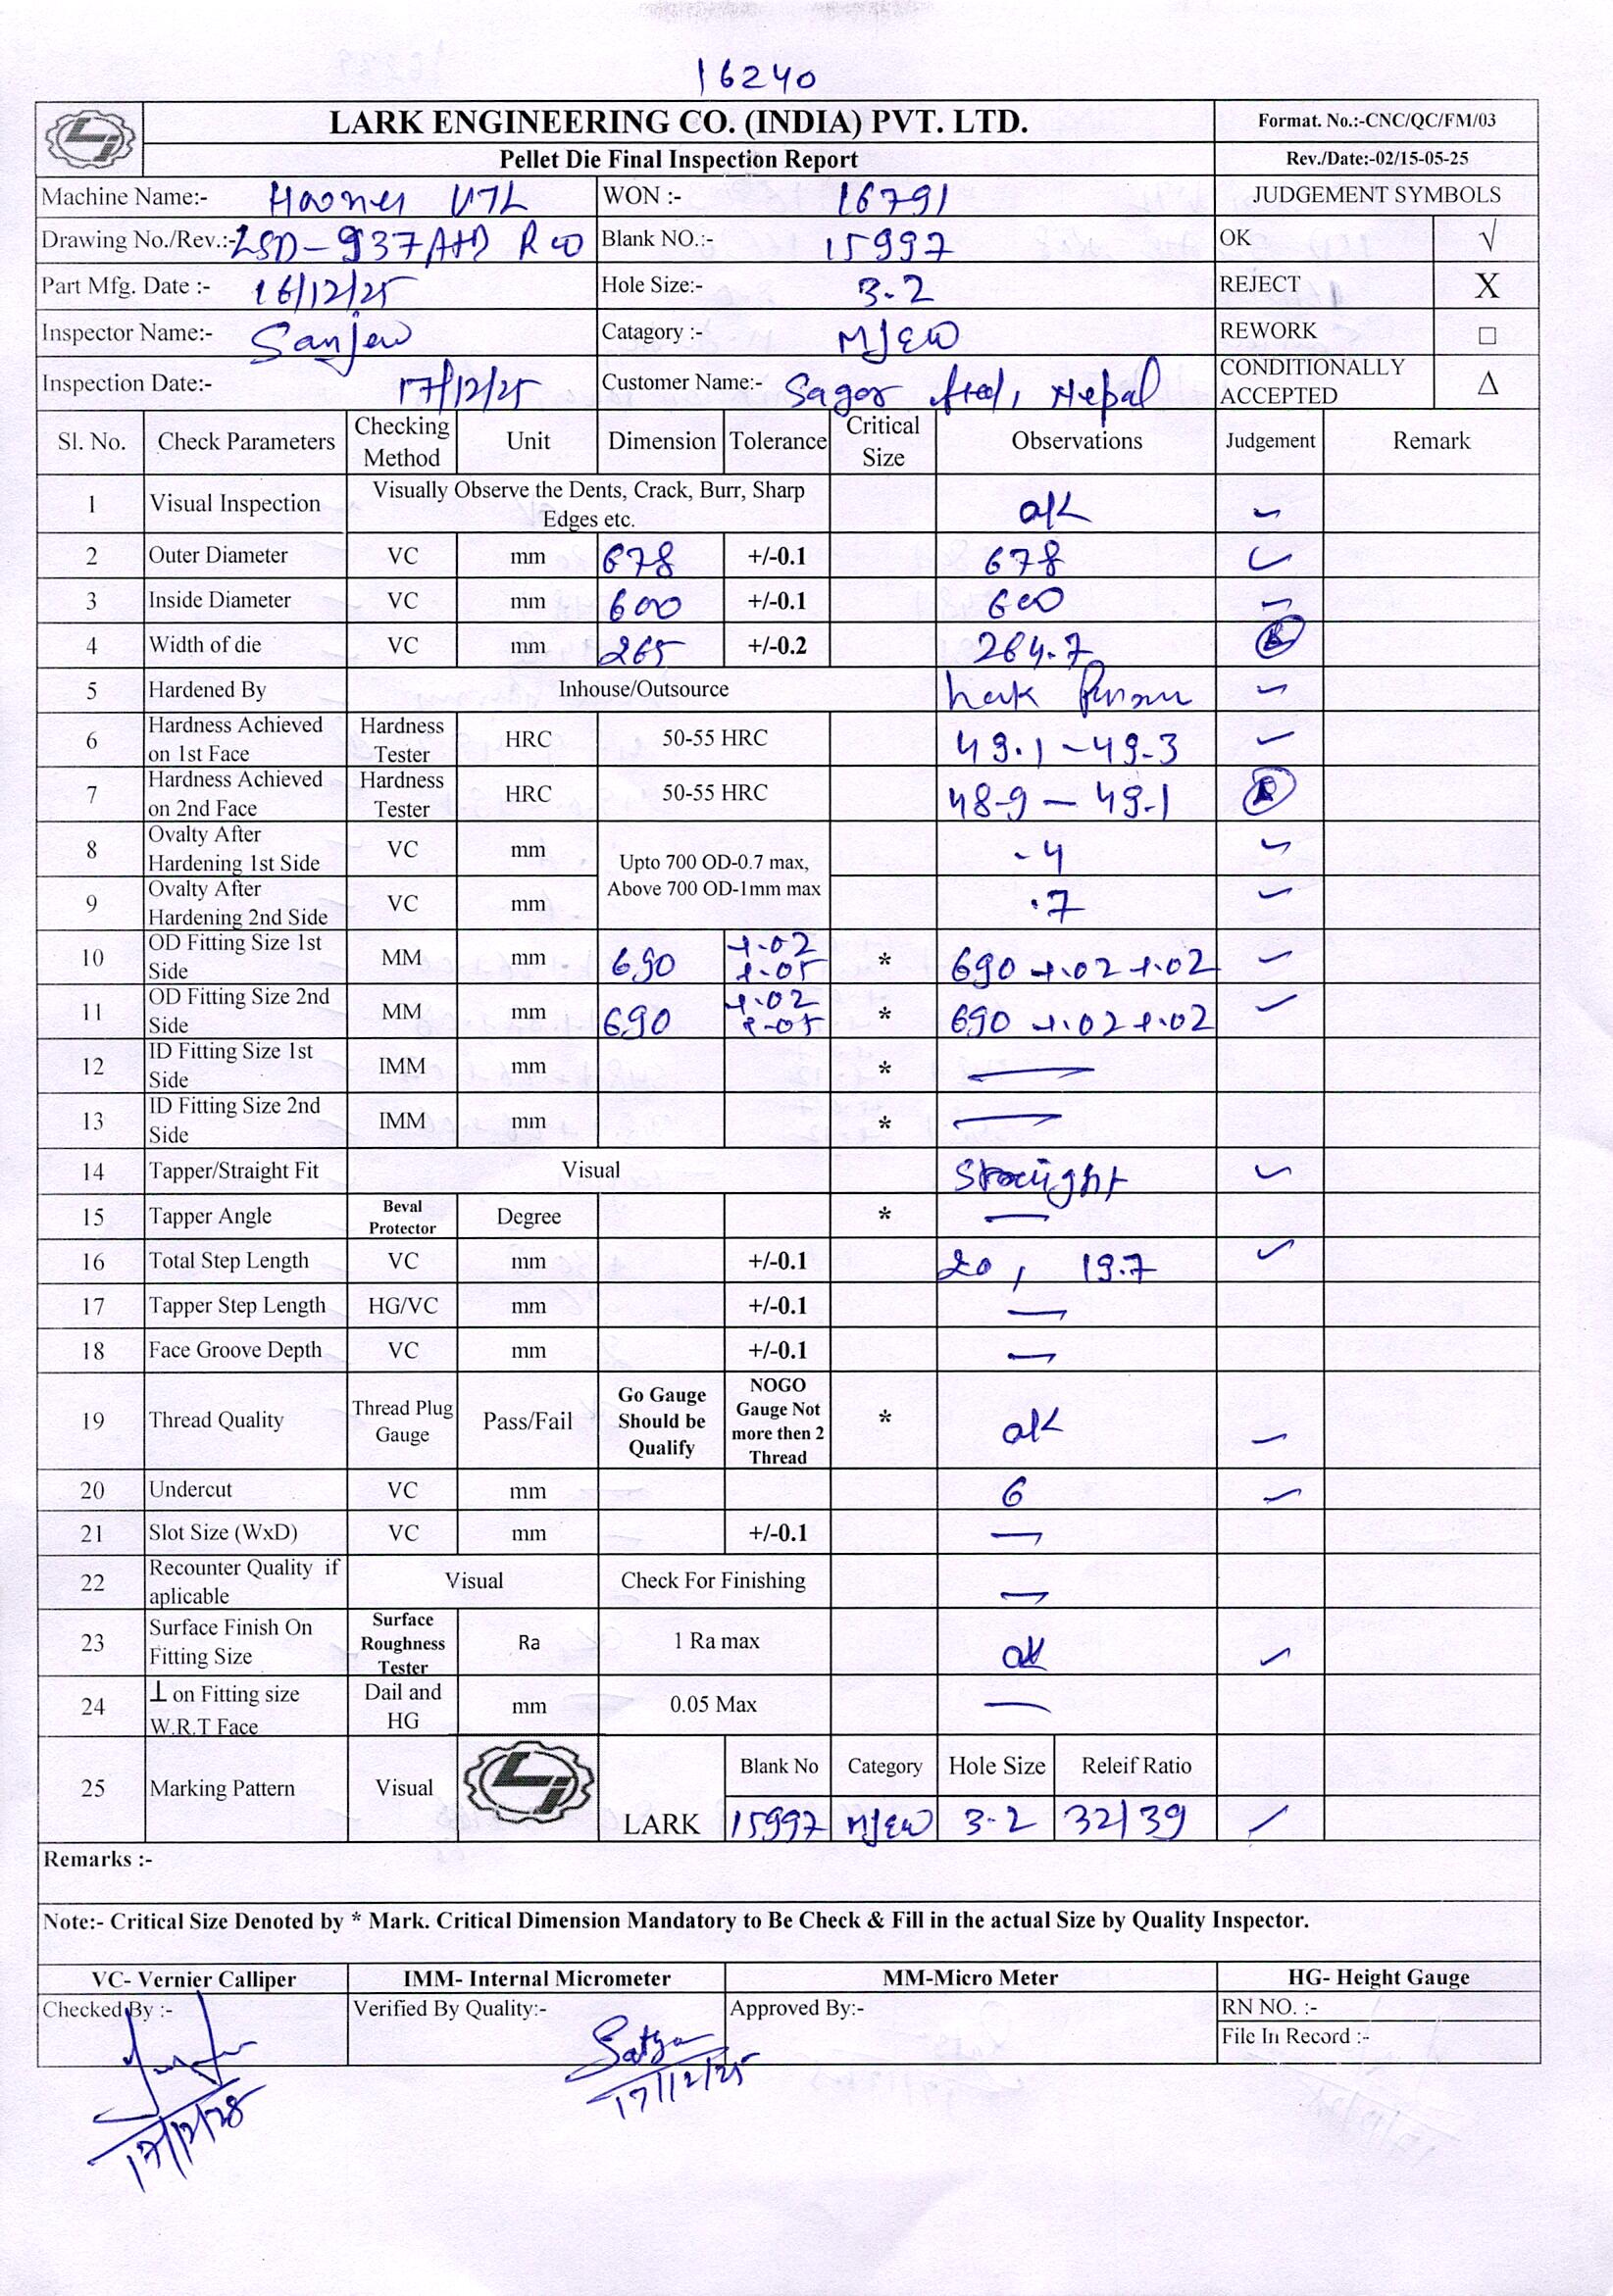 16240
LARK ENGINEERING CO. (INDIA) PVT. LTD.
Format. No.:-CNC/QC/FM/03
Pellet Die Final Inspection Report
Rev./Date:-02/15-05-25
Machine Name:- VTL WON :- 16791 JUDGEMENT SYMBOLS
Drawing No./Rev.:- LSD-937A+D R00 Blank NO.:- 15997 OK √
Part Mfg. Date :- 16/12/25 Hole Size:- 3.2 REJECT X
Inspector Name:- Sanjeev Catagory :- REWORK □
Inspection Date:- 17/12/25 Customer Name:- Sagar Nepal CONDITIONALLY ACCEPTED Δ
Sl. No. Check Parameters Checking Method Unit Dimension Tolerance Critical Size Observations Judgement Remark
1 Visual Inspection Visually Observe the Dents, Crack, Burr, Sharp Edges etc. ok ✓
2 Outer Diameter VC mm 678 +/-0.1 678 ✓
3 Inside Diameter VC mm 600 +/-0.1 600 ✓
4 Width of die VC mm 265 +/-0.2 264.7
5 Hardened By Inhouse/Outsource Lark ✓
6 Hardness Achieved on 1st Face Hardness Tester HRC 50-55 HRC 49.1-49.3 ✓
7 Hardness Achieved on 2nd Face Hardness Tester HRC 50-55 HRC 48.9-49.1
8 Ovalty After Hardening 1st Side VC mm Upto 700 OD-0.7 max, Above 700 OD-1mm max .4 ✓
9 Ovalty After Hardening 2nd Side VC mm .7 ✓
10 OD Fitting Size 1st Side MM mm 690 +.02 +.05 * 690 +.02 +.02 ✓
11 OD Fitting Size 2nd Side MM mm 690 +.02 +.05 * 690 +.02 +.02 ✓
12 ID Fitting Size 1st Side IMM mm * —
13 ID Fitting Size 2nd Side IMM mm * —
14 Tapper/Straight Fit Visual Straight ✓
15 Tapper Angle Beval Protector Degree * —
16 Total Step Length VC mm +/-0.1 20, 19.7 ✓
17 Tapper Step Length HG/VC mm +/-0.1 —
18 Face Groove Depth VC mm +/-0.1 —
19 Thread Quality Thread Plug Gauge Pass/Fail Go Gauge Should be Qualify NOGO Gauge Not more then 2 Thread * ok ✓
20 Undercut VC mm 6 ✓
21 Slot Size (WxD) VC mm +/-0.1 —
22 Recounter Quality if aplicable Visual Check For Finishing —
23 Surface Finish On Fitting Size Surface Roughness Tester Ra 1 Ra max ok ✓
24 ⊥ on Fitting size W.R.T Face Dail and HG mm 0.05 Max —
25 Marking Pattern Visual LARK Blank No Category Hole Size Releif Ratio
15997 3.2 32/39 ✓
Remarks :-
Note:- Critical Size Denoted by * Mark. Critical Dimension Mandatory to Be Check & Fill in the actual Size by Quality Inspector.
VC- Vernier Calliper IMM- Internal Micrometer MM-Micro Meter HG- Height Gauge
Checked By :- Verified By Quality:- Approved By:- RN NO. :-
File In Record :-
Satya
17/12/25